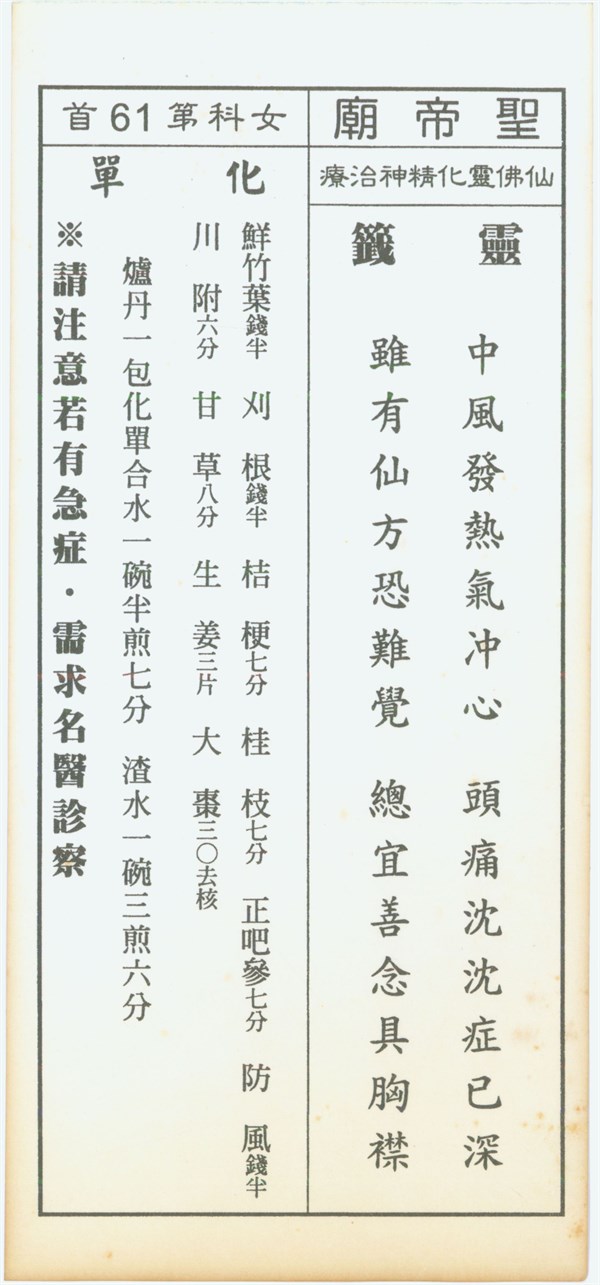 聖帝廟
仙佛靈化精神治療
靈籤
中風發熱氣冲心　頭痛沈沈症已深
雖有仙方恐難覺　總宜善念具胸襟
女科第61首
化單
鮮竹葉錢半　刈根錢半　桔梗七分　桂枝七分　正吧參七分　防風錢半
川附六分　甘草八分　生姜三片　大棗三〇去核
爐丹一包化單合水一碗半煎七分　渣水一碗三煎六分
※請注意若有急症・需求名醫診察